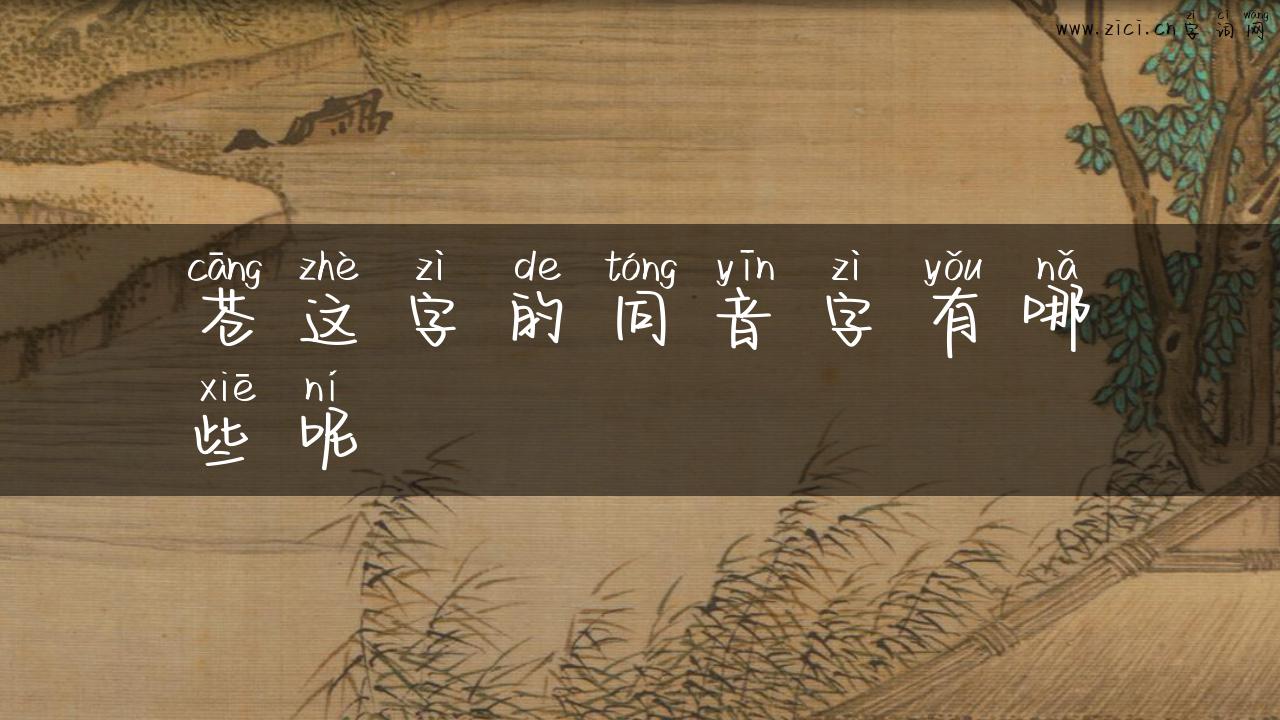 zì cí wǎng
www.zici.cn字词网
cāng zhè zì de tóng yīn zì yǒu nǎ
苍这字的同音字有哪
xiē ní
些呢